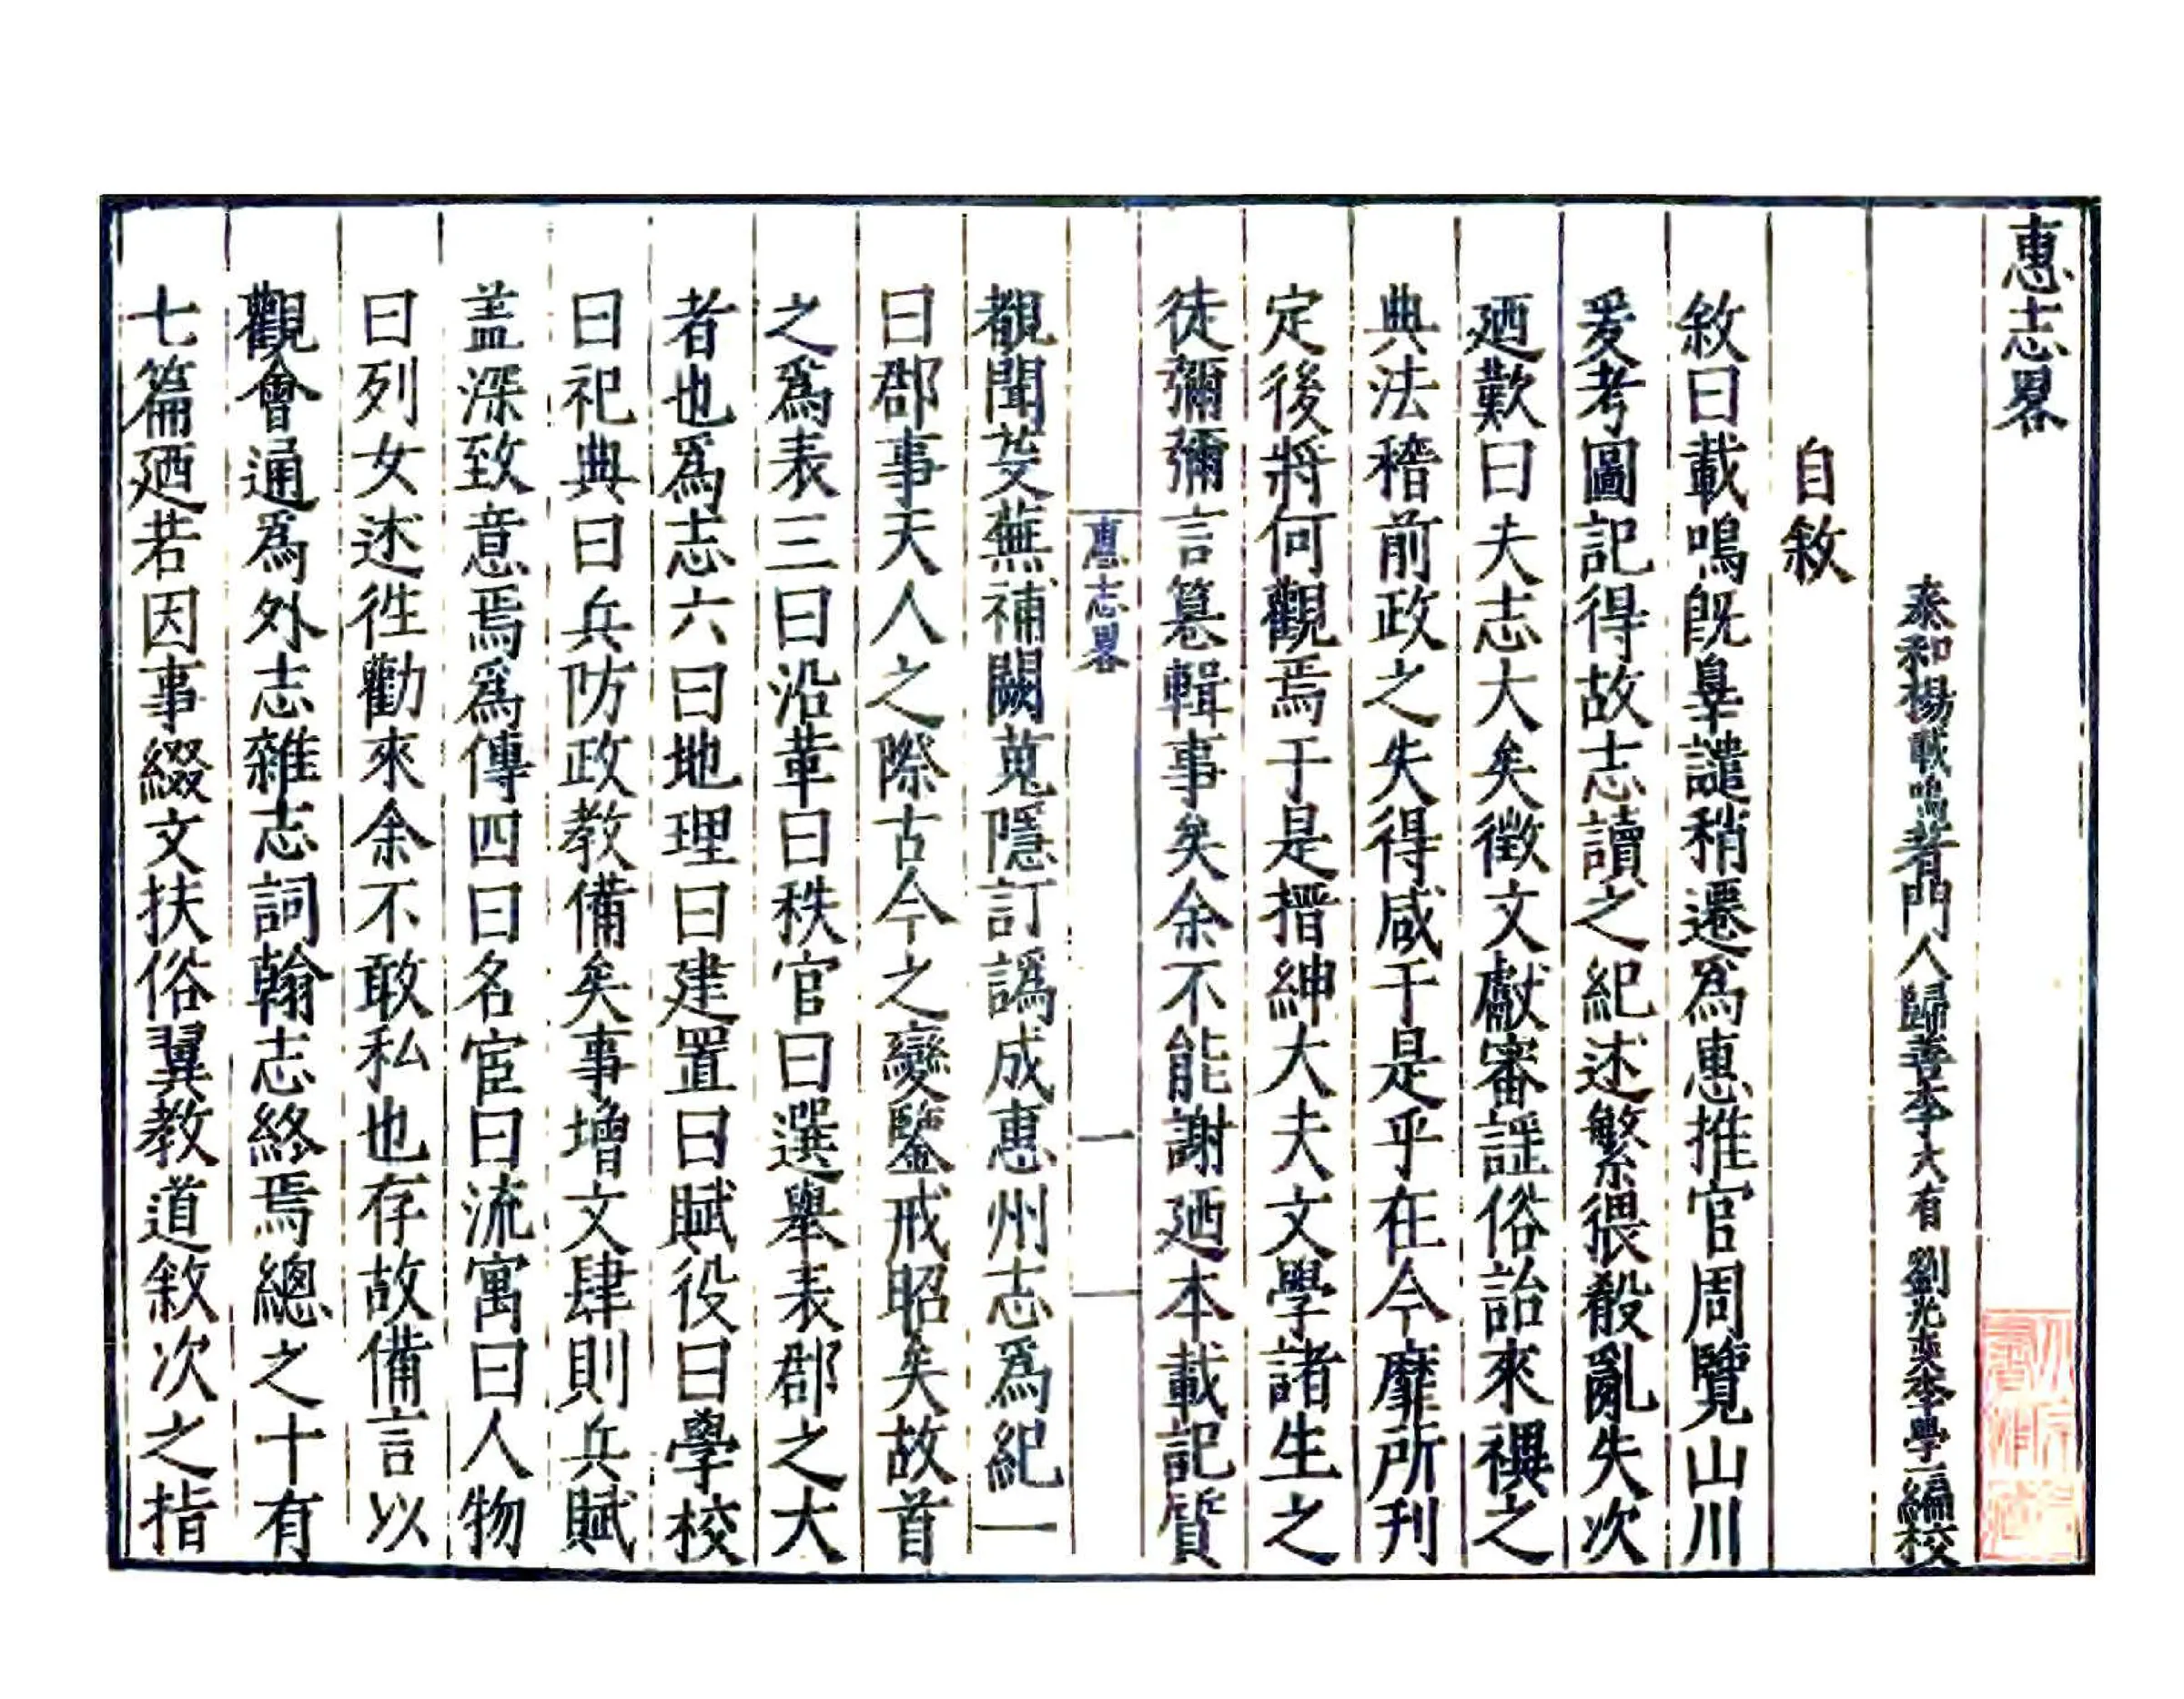 惠志畧
泰和楊載鳴著門人歸善李大有 劉光奕李學一編校
自敘
敘曰載鳴既辠譴稍遷爲惠推官周覽山川
爰考圖記得故志讀之紀述繁猥殽亂失次
廼歎曰夫志大矣徵文獻審謡俗詒來禩之
典法稽前政之失得咸于是乎在今靡所刋
定後將何觀焉于是搢紳大夫文學諸生之
徒彌彌言䇿輯事矣余不能謝廼本載記質
惠志畧 一
覩聞芟蕪補闕蒐隱訂譌成惠州志爲紀一
曰郡事天人之際古今之變鑒戒昭矣故首
之爲表三曰沿革曰秩官曰選舉表郡之大
者也爲志六曰地理曰建置曰賦役曰學校
曰祀典曰兵防政教備矣事增文肆則兵賦
盖深致意焉爲傳四曰名宦曰流寓曰人物
曰列女述徃勸來余不敢私也存故備言以
觀會通爲外志雜志詞翰志終焉總之十有
七篇廼若因事綴文扶俗翼教道敘次之指